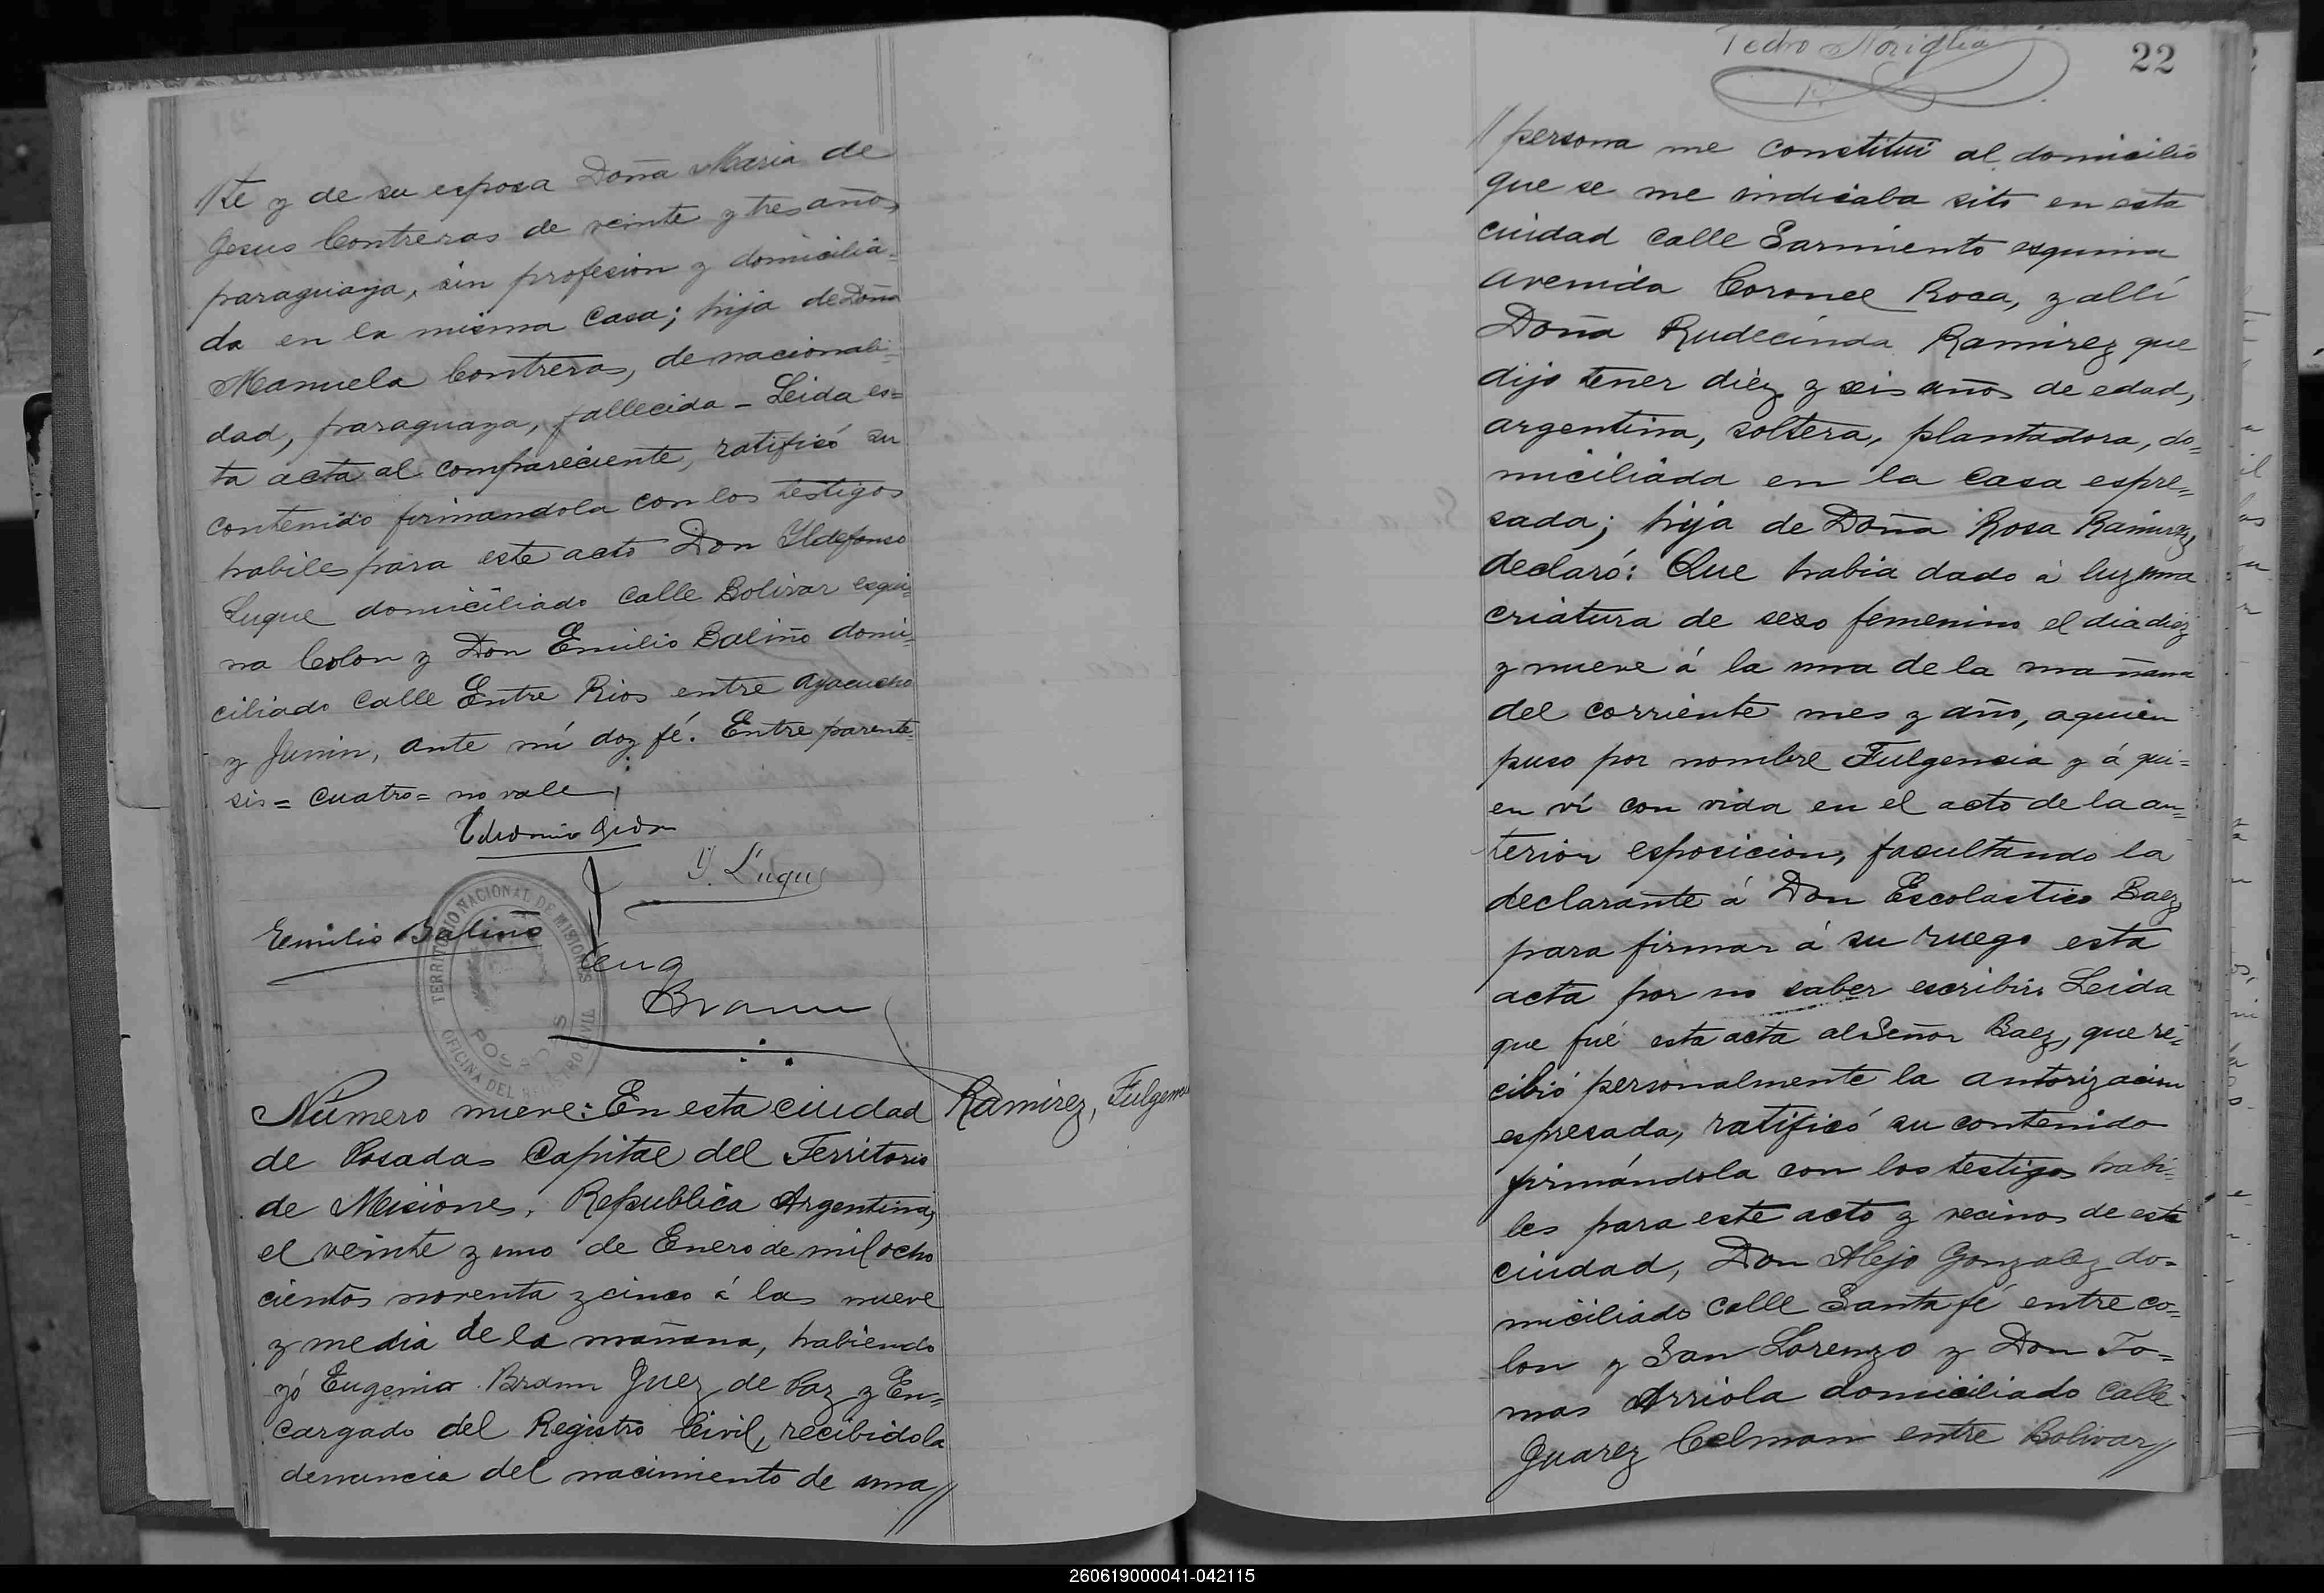 //te y de su esposa Doña Maria de
Jesus Contreras de veinte y tres años,
paraguaya, sin profesion y domicilia=
da en la misma casa; hija de Doña
Manuela Contreras, de nacionali=
dad, paraguaya, fallecida - Leida es=
ta acta al compareciente, ratificó su
contenido firmandola con los testigos
habiles para este acto Don Yldefonso
Luque domiciliado calle Bolivar esqui=
na Colon y Don Emilio Baliño domi=
ciliado calle Entre Rios entre Ayacucho
y Junin, ante mí doy fé. Entre parente=
sis = cuatro = no vale
Y. Luque
Emilio Baliño
Eug
Braun
TERRITORIO NACIONAL DE MISIONES
POSADAS
OFICINA DEL REGISTRO CIVIL
Número nueve: En esta ciudad
Ramirez, Fulgencia
de Posadas Capital del Territorio
de Misiones, Republica Argentina,
el veinte y uno de Enero de mil ocho
cientos noventa y cinco á las nueve
y media de la mañana, habiendo
yó Eugenio Braun Juez de Paz y En=
cargado del Registro Civil, recibido la
denuncia del nacimiento de una//
22
//persona me constituí al domicilio
que se me indicaba sito en esta
ciudad calle Sarmiento esquina
avenida Coronel Roca, y allí
Doña Rudecinda Ramirez que
dijo tener diez y seis años de edad,
argentina, soltera, plantadora, do=
miciliada en la casa espre=
sada; hija de Doña Rosa Ramirez,
declaró: Que habia dado á luz una
criatura de sexo femenino el dia diez
y nueve á la una de la mañana
del corriente mes y año, a quien
puso por nombre Fulgencia y á qui=
en ví con vida en el acto de la an=
terior esposicion, facultando la
declarante á Don Escolastico Baez,
para firmar á su ruego esta
acta por no saber escribir. Leida
que fué esta acta al Señor Baez, que re=
cibió personalmente la autorizacion
espresada, ratificó su contenido
firmándola con los testigos habi=
les para este acto y vecinos de esta
ciudad, Don Alejo Gonzalez do=
miciliado calle Santa fé entre Co=
lon y San Lorenzo y Don To=
mas Arriola domiciliado calle
Juarez Celman entre Bolivar//
260619000041-042115